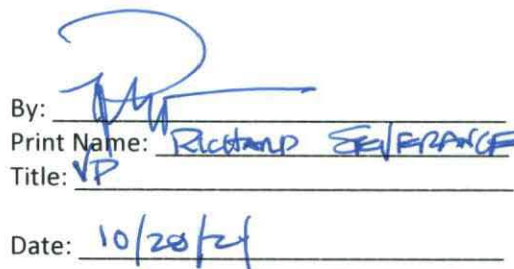 By:
Print Name: RICHARD SEVERANCE
Title: VP
Date: 10/28/21